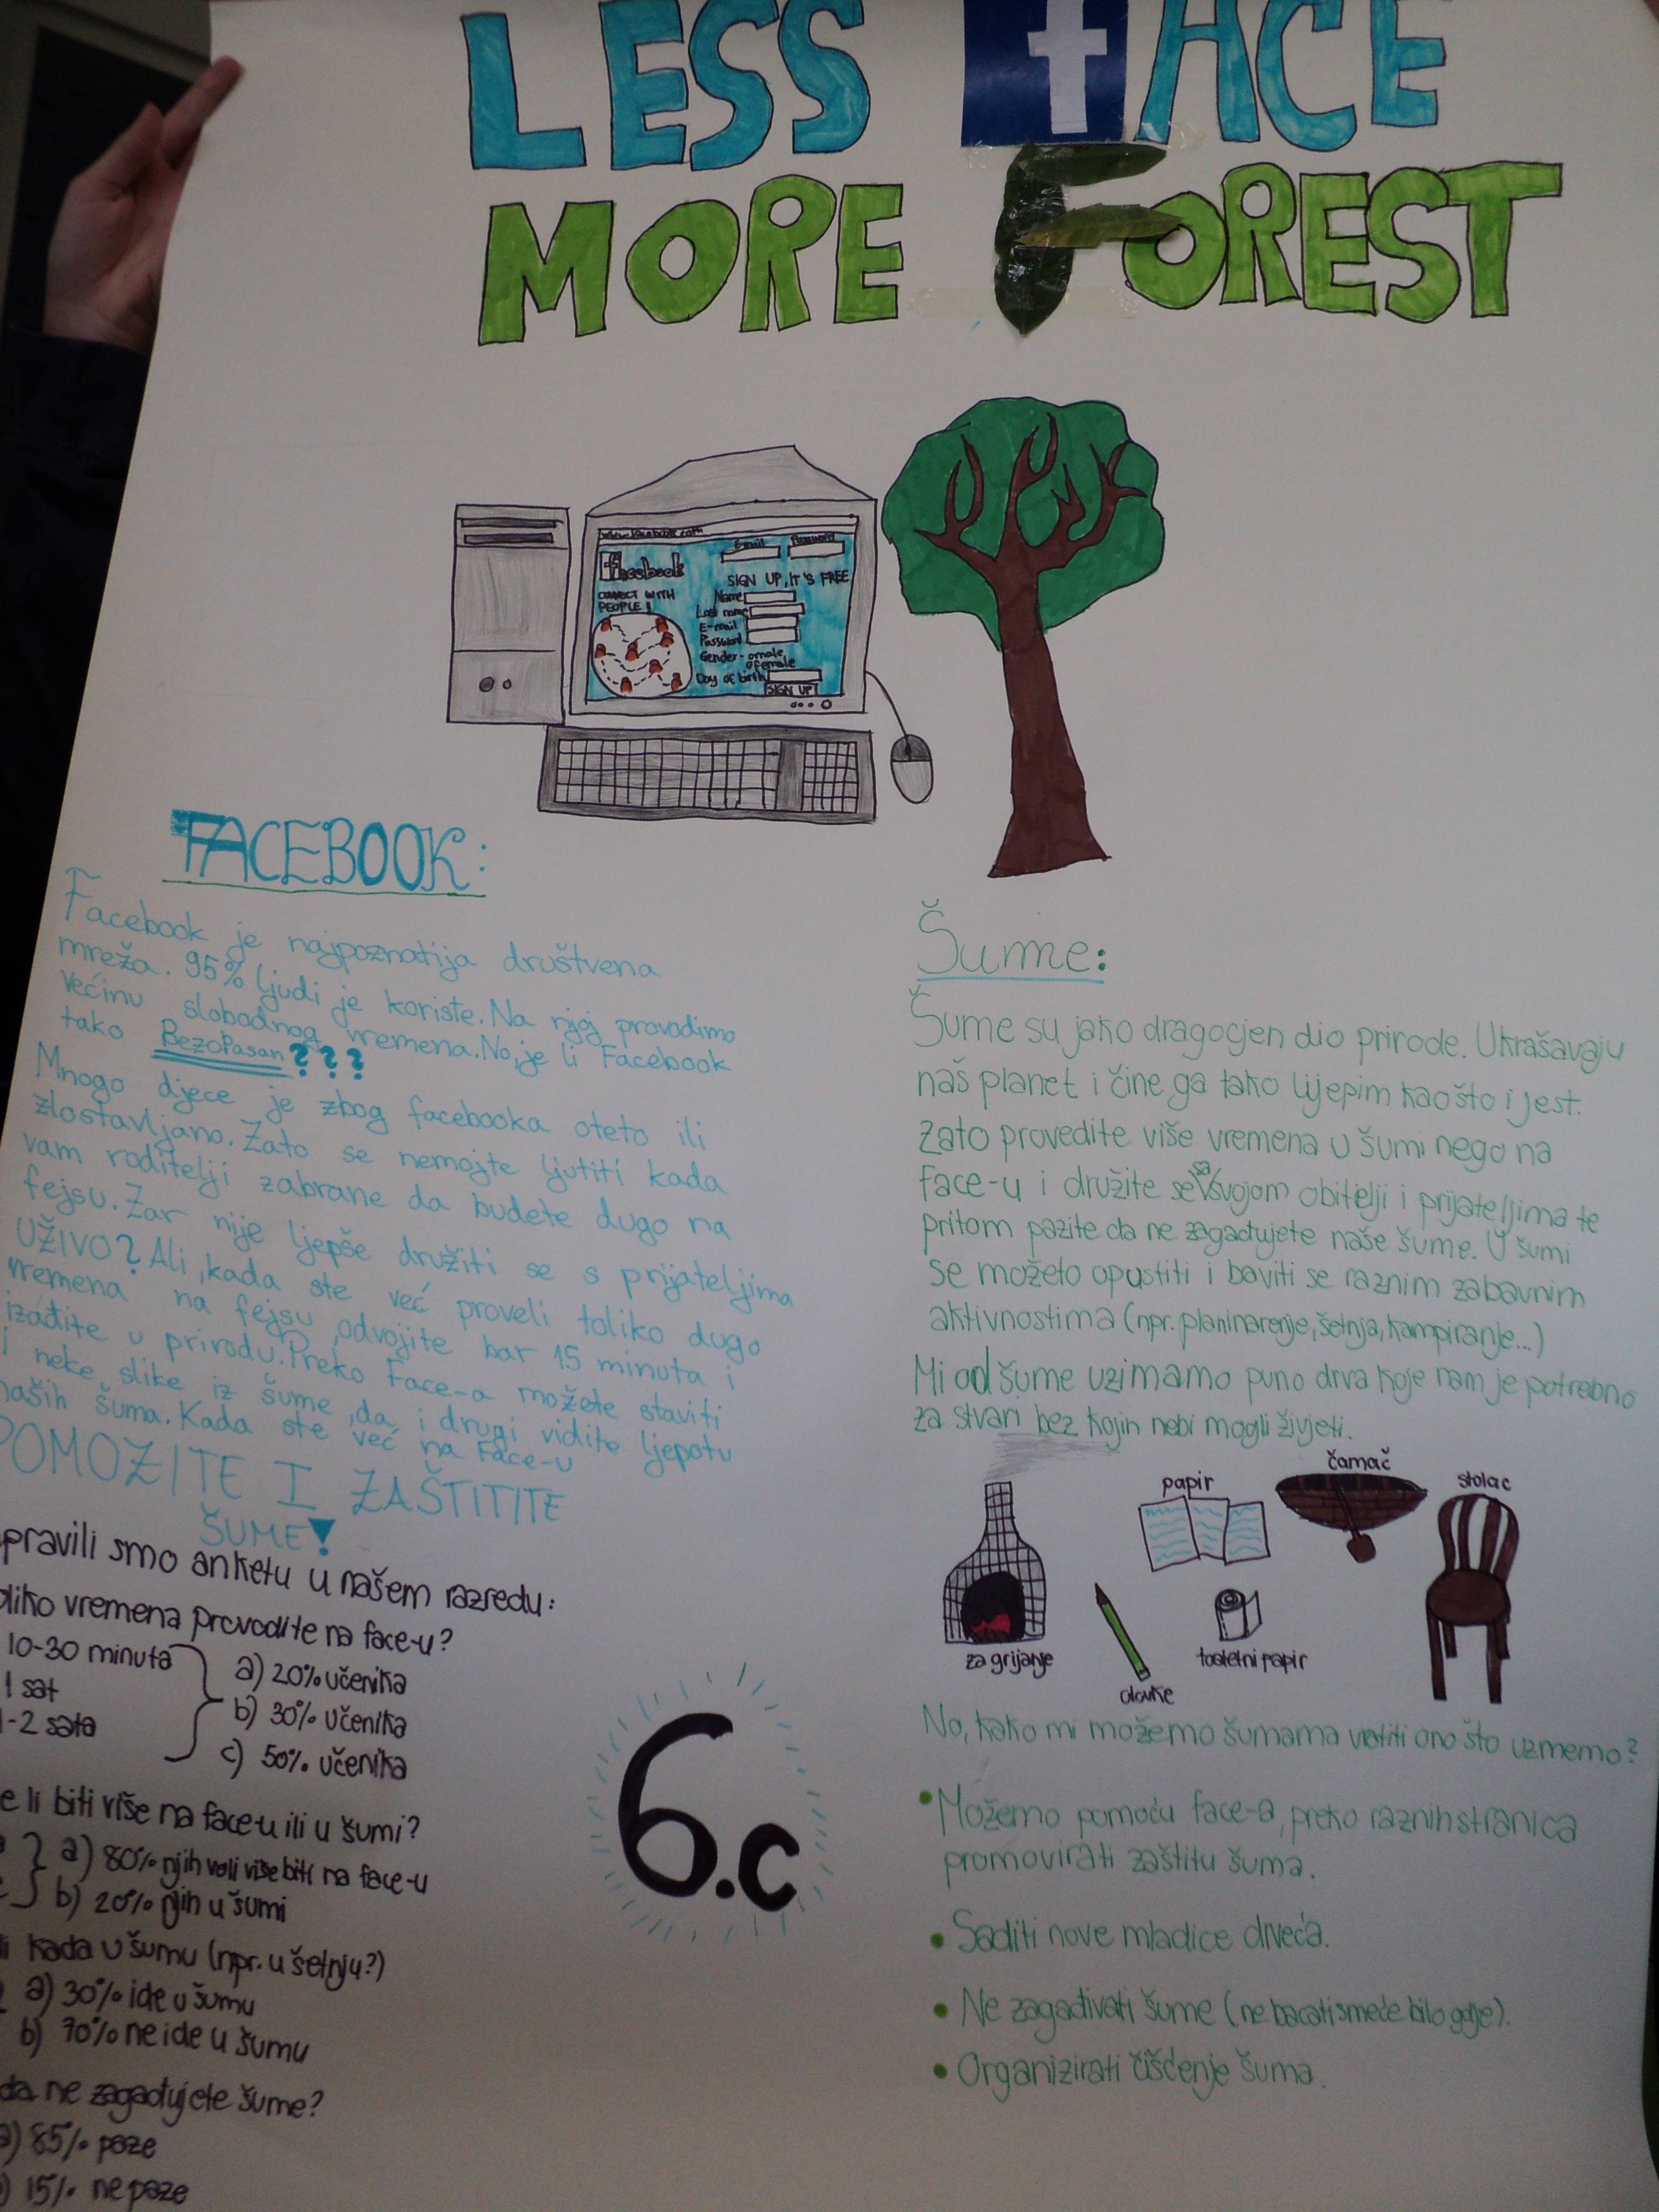 LESS FACE
MORE FOREST
www.facebook.com
facebook
E-mail
Password
SIGN UP, IT'S FREE
CONNECT WITH
PEOPLE!
Name
Last name
E-mail
Password
Gender - o male
o female
Day of birth
SIGN UP
FACEBOOK:
Facebook je najpoznatija društvena
mreža. 95% ljudi je koriste. Na njoj provodimo
većinu slobodnog vremena. No, je li Facebook
tako BezoPasan???
Mnogo djece je zbog facebooka oteto ili
zlostavljano. Zato se nemojte ljutiti kada
vam roditelji zabrane da budete dugo na
fejsu. Zar nije ljepše družiti se s prijateljima
UŽIVO? Ali, kada ste već proveli toliko dugo
vremena na fejsu, odvojite bar 15 minuta i
izađite u prirodu. Preko Face-a možete staviti
i neke slike iz šume, da i drugi vidite ljepotu
naših šuma. Kada ste već na Face-u
POMOZITE I ZAŠTITITE
ŠUME!
pravili smo anketu u našem razredu:
oliko vremena provodite na face-u?
10-30 minuta
1 sat
1-2 sata
a) 20% učenika
b) 30% učenika
c) 50% učenika
e li biti više na face-u ili u šumi?
a) 80% njih voli više biti na face-u
b) 20% njih u šumi
li kada u šumu (npr. u šetnju?)
a) 30% ide u šumu
b) 70% ne ide u šumu
da ne zagađujete šume?
a) 85% paze
) 15% ne paze
6.c
Šume:
Šume su jako dragocjen dio prirode. Ukrašavaju
naš planet i čine ga tako lijepim kao što i jest.
Zato provedite više vremena u šumi nego na
face-u i družite se sa svojom obitelji i prijateljima te
pritom pazite da ne zagađujete naše šume. U šumi
se možeto opustiti i baviti se raznim zabavnim
aktivnostima (npr. planinarenje, šetnja, kampiranje...)
Mi od šume uzimamo puno drva koje nam je potrebno
za stvari bez kojin nebi mogli živjeti.
za grijanje
papir
čamac
stolac
olovke
toaletni papir
No, kako mi možemo šumama vratiti ono što uzmemo?
• Možemo pomoću face-a, preko raznih stranica
promovirati zaštitu šuma.
• Saditi nove mladice drveća.
• Ne zagađivati šume (ne bacati smeće bilo gdje).
• Organizirati čišćenje šuma.